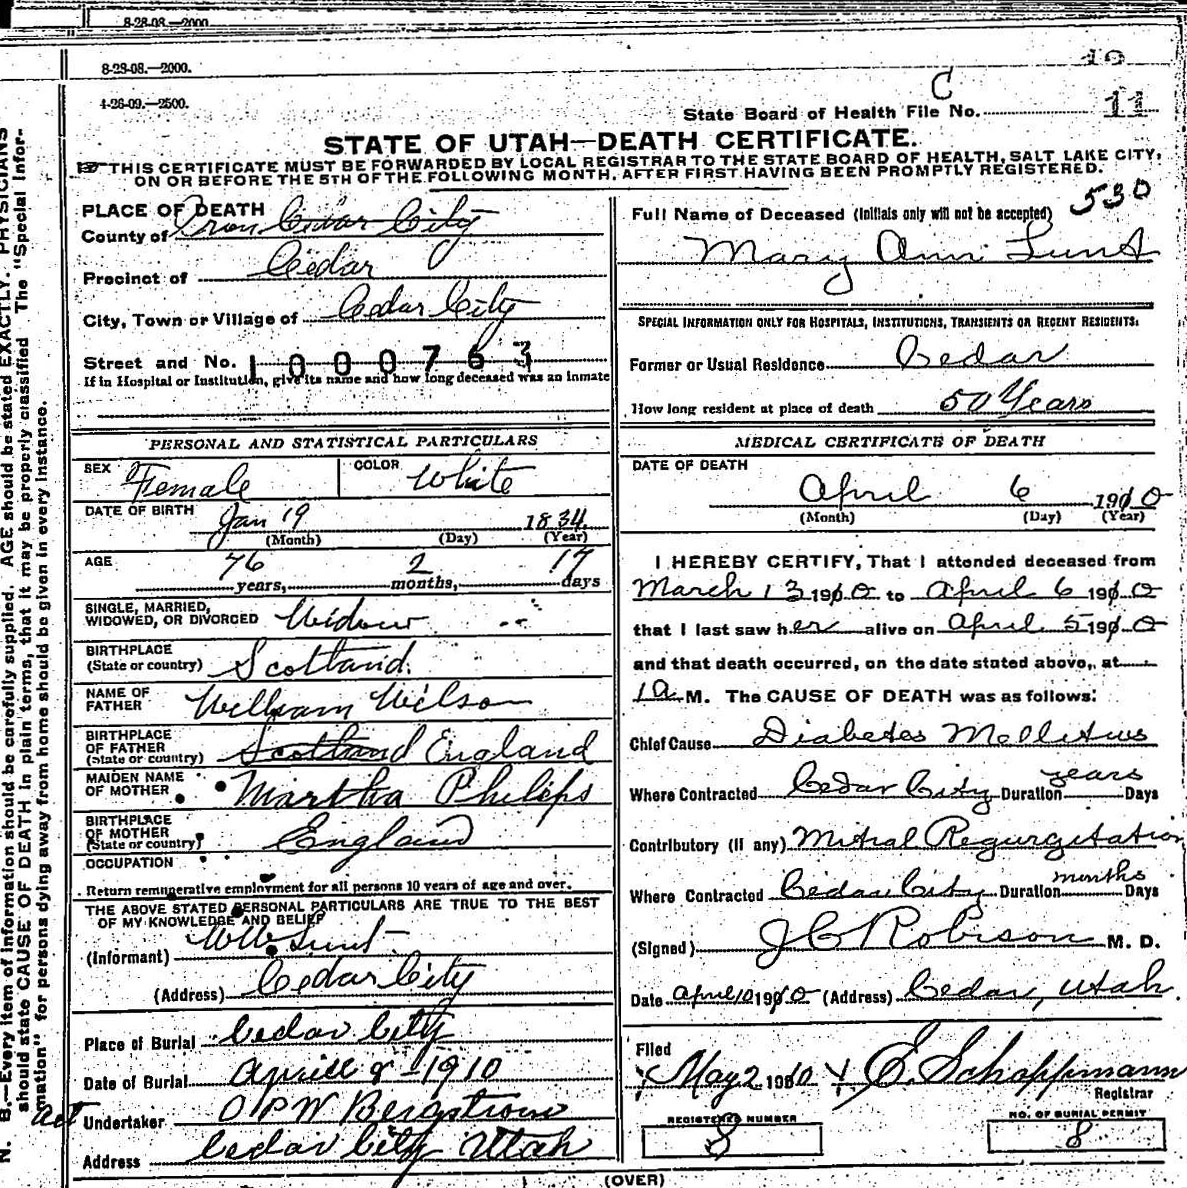 8-28-08.—2000.
8-28-08.—2000.
4-26-09.—2500.
10
C
State Board of Health File No. 11
STATE OF UTAH—DEATH CERTIFICATE.
THIS CERTIFICATE MUST BE FORWARDED BY LOCAL REGISTRAR TO THE STATE BOARD OF HEALTH, SALT LAKE CITY,
ON OR BEFORE THE 5TH OF THE FOLLOWING MONTH, AFTER FIRST HAVING BEEN PROMPTLY REGISTERED.
PLACE OF DEATH
County of Iron Cedar City
Precinct of Cedar
City, Town or Village of Cedar City
Street and No. 1000763
If in Hospital or Institution, give its name and how long deceased was an inmate
530
Full Name of Deceased (Initials only will not be accepted)
Mary Ann Lunt
SPECIAL INFORMATION ONLY FOR HOSPITALS, INSTITUTIONS, TRANSIENTS OR RECENT RESIDENTS:
Former or Usual Residence Cedar
How long resident at place of death 50 Years
PERSONAL AND STATISTICAL PARTICULARS
SEX Female COLOR White
DATE OF BIRTH Jan 19 1834
(Month) (Day) (Year)
AGE 76 years, 2 months, 17 days
SINGLE, MARRIED,
WIDOWED, OR DIVORCED Widow
BIRTHPLACE
(State or country) Scotland.
NAME OF
FATHER William Wilson
BIRTHPLACE
OF FATHER
(State or country) Scotland England
MAIDEN NAME
OF MOTHER Martha Philips
BIRTHPLACE
OF MOTHER
(State or country) England
OCCUPATION
Return remunerative employment for all persons 10 years of age and over.
THE ABOVE STATED PERSONAL PARTICULARS ARE TRUE TO THE BEST
OF MY KNOWLEDGE AND BELIEF
(Informant) W W Lunt
(Address) Cedar City
Place of Burial Cedar City
Date of Burial Aprill 8 1910
Undertaker O P W Bergstrom
Address Cedar City Utah
MEDICAL CERTIFICATE OF DEATH
DATE OF DEATH
April 6 1910
(Month) (Day) (Year)
I HEREBY CERTIFY, That I attended deceased from
March 13 1910 to April 6 1910
that I last saw her alive on April 5 1910
and that death occurred, on the date stated above, at
1 a M. The CAUSE OF DEATH was as follows:
Chief Cause Diabetes Mellitus
Where Contracted Cedar City Duration years Days
Contributory (if any) Mitral Regurgitation
Where Contracted Cedar City Duration months Days
(Signed) J C Robison M. D.
Date April 10 1910 (Address) Cedar, Utah
Filed
May 2 1910 E. Schoppmann
Registrar
REGISTERED NUMBER
8
NO. OF BURIAL PERMIT
8
(OVER)
N. B.—Every item of information should be carefully supplied. AGE should be stated EXACTLY. PHYSICIANS
should state CAUSE OF DEATH in plain terms, that it may be properly classified. The "Special Infor-
mation" for persons dying away from home should be given in every instance.